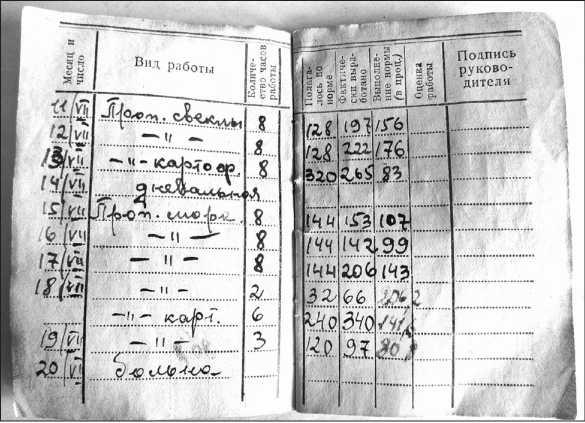 Месяц и число Вид работы Количество часов работы Полагалось по норме Фактически выработано Выполнение нормы (в проц.) Оценка работы Подпись руководителя
11/VII Проп. свеклы 8 128 197 156
12/VII —"— 8 128 222 176
13/VII —"— картоф. 8 320 265 83
14/VII дневальная
15/VII Проп. морк. 8 144 153 107
16/VII —"— 8 144 142 99
17/VII —"— 8 144 206 143
18/VII —"— 2 32 66
—"— карт. 6 240 340
19/VII —"— 3 120 97 80
20/VII больна